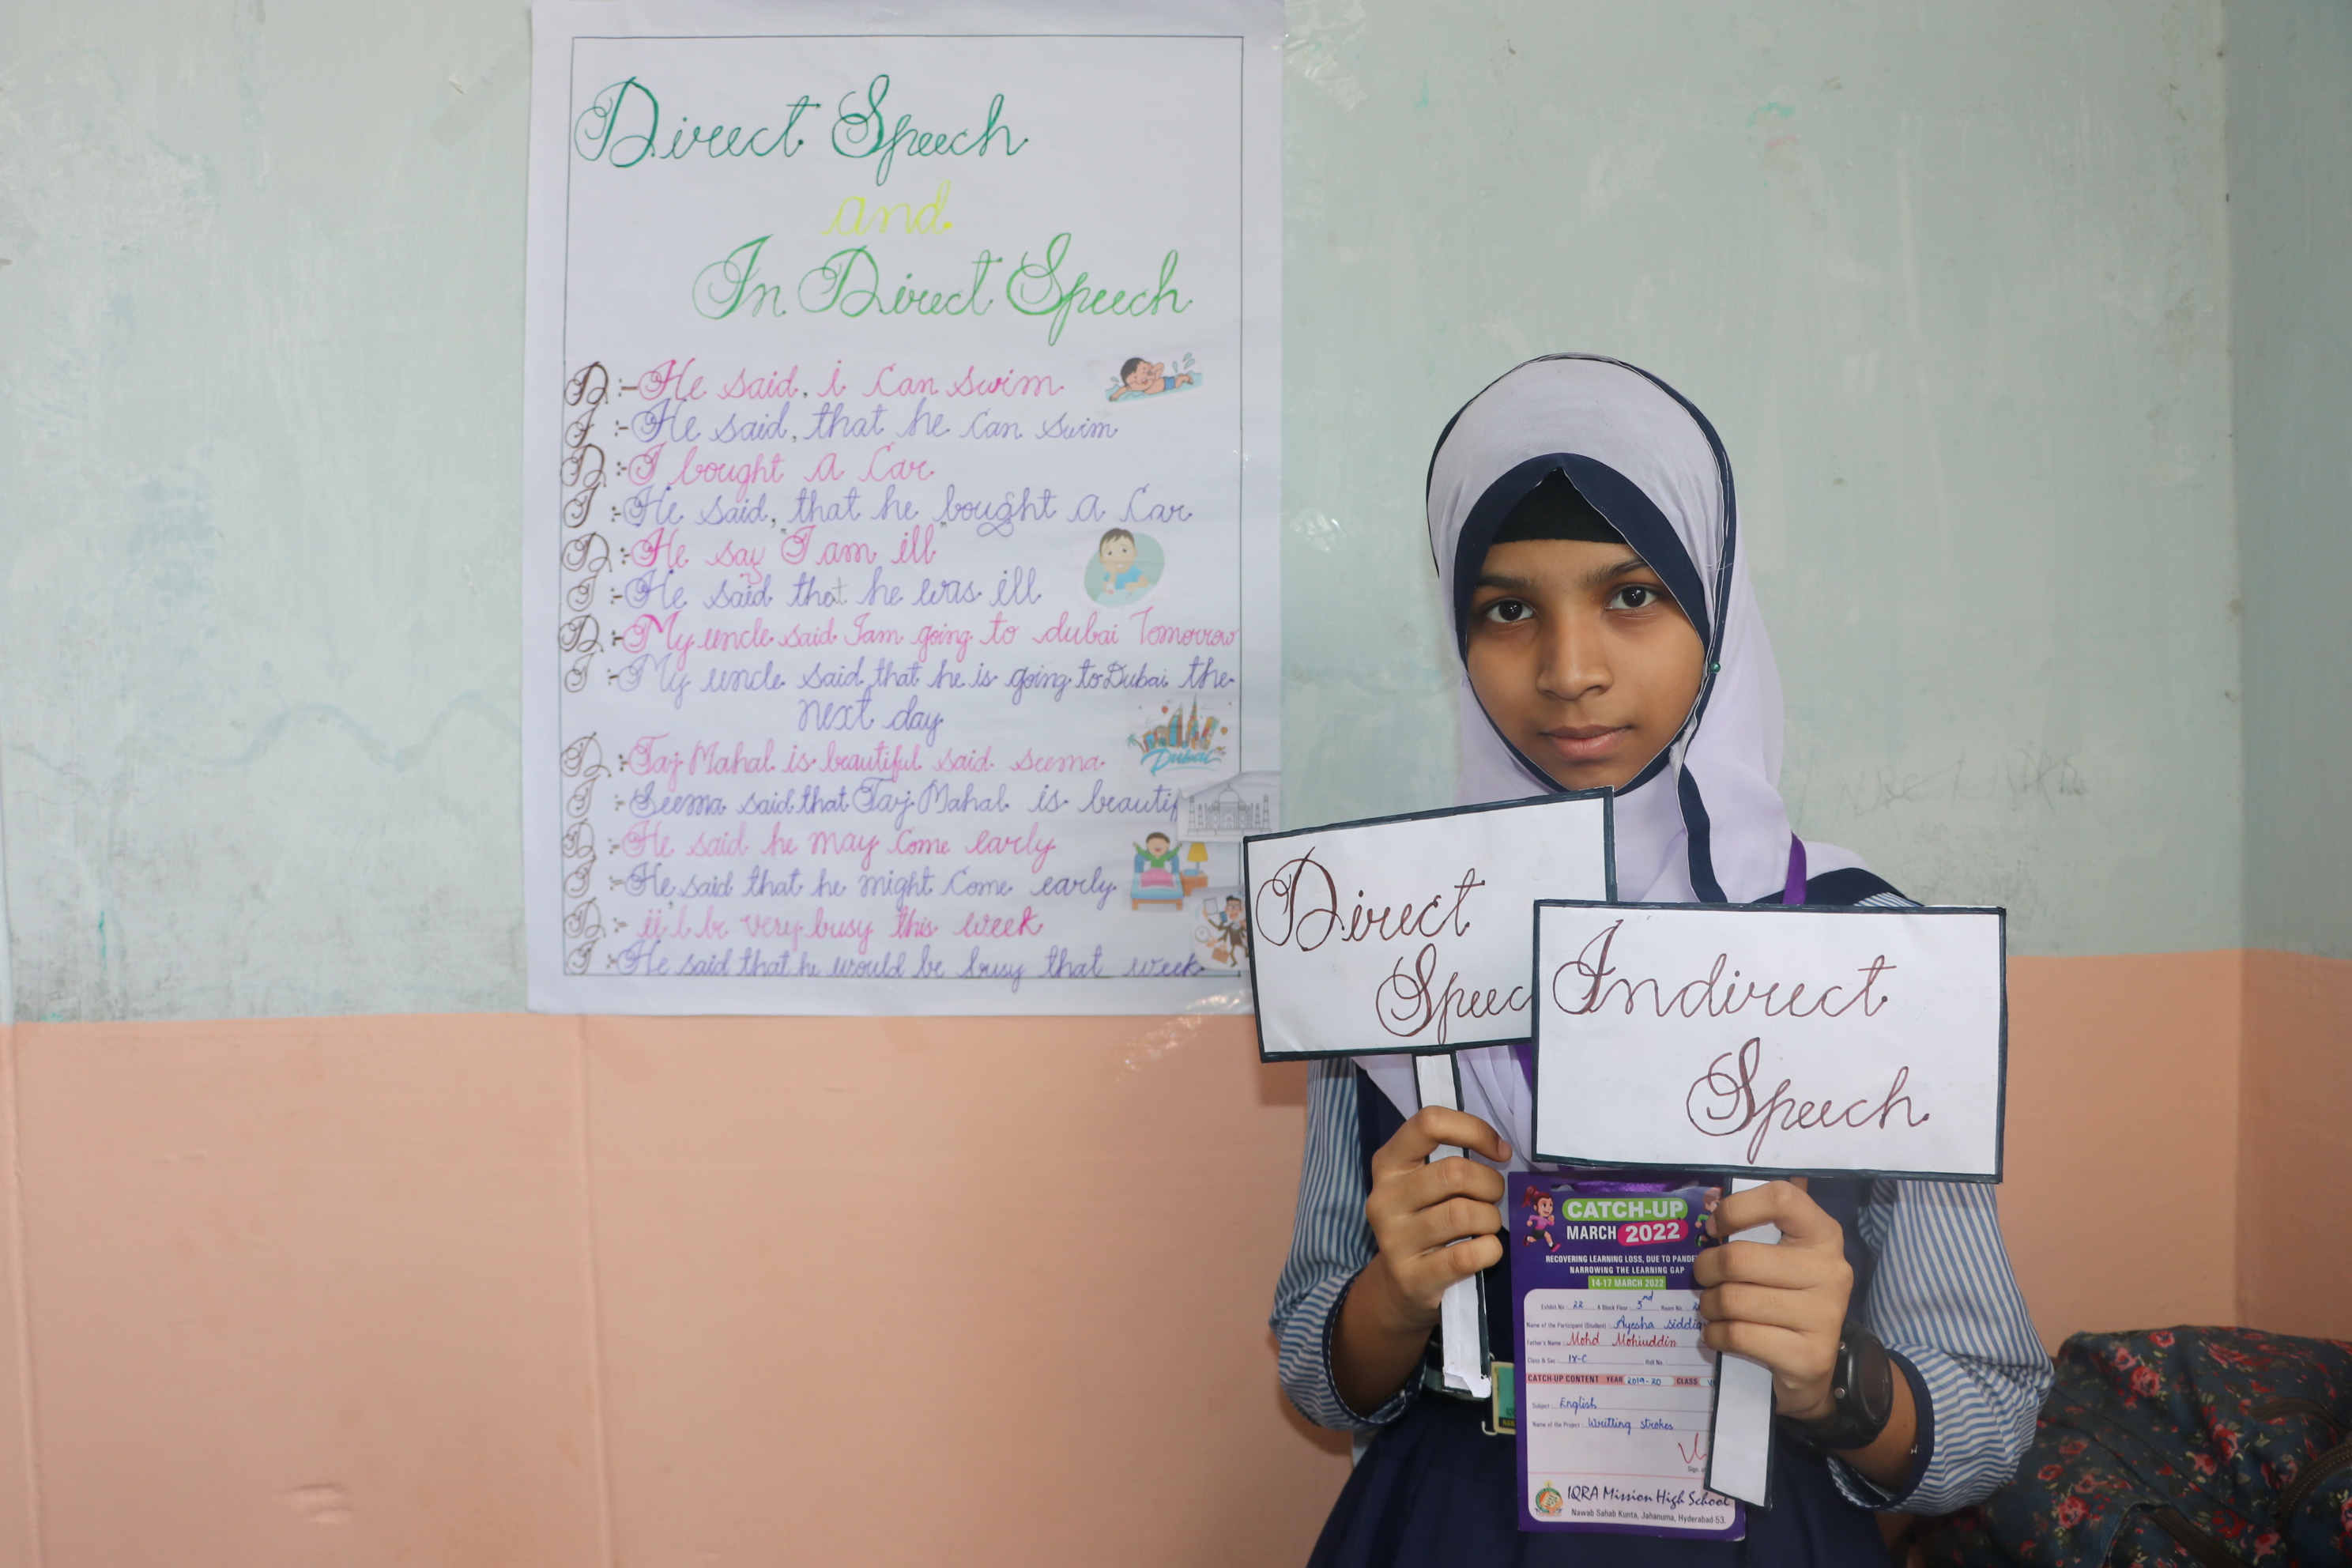 Direct Speech
and
In Direct Speech
D :- He said, i can swim
I :- He said, that he can swim
D :- I bought a car
I :- He said, that he bought a car
D :- He say "I am ill"
I :- He said that he was ill
D :- My uncle said Iam going to dubai Tomorrow
I :- My uncle said that he is going to Dubai the
next day
Dubai
D :- Taj Mahal is beautiful said seema
I :- Seema said that Taj Mahal is beautif
D :- He said he may come early
I :- He said that he might come early
D :- ii'l be very busy this week
I :- He said that he would be busy that week
Direct
Speec
Indirect
Speech
CATCH-UP
MARCH 2022
RECOVERING LEARNING LOSS, DUE TO PANDE
NARROWING THE LEARNING GAP
14-17 MARCH 2022
Exhibit No : 22 A Block Floor : 3rd Room No. :
Name of the Participant (Student) : Ayesha siddiq
Father's Name : Mohd Mohiuddin
Class & Sec : IX-C Roll No. :
CATCH-UP CONTENT YEAR 2019-20 CLASS
Subject : English
Name of the Project : Writting strokes
Sign. of
IQRA Mission High School
Nawab Sahab Kunta, Jahanuma, Hyderabad-53.